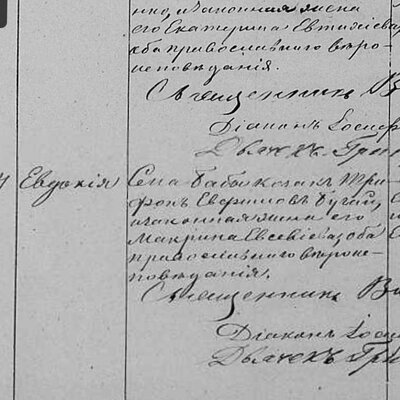 нко, и законная жена
его Екатерина Евтихиева,
оба православнаго вѣро-
исповѣданія.
Священникъ В
Діаконъ Іосиф
Дьячекъ Гри
Евдокія
Села козакъ Три-
фонъ
и законная жена его
Макрина Евсевіева, оба
православнаго вѣроис-
повѣданія.
Священникъ Ва
Діаконъ Іоси
Дьячекъ Гри